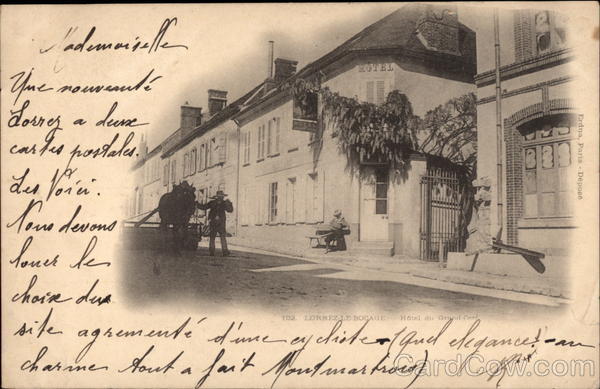 Mademoiselle
Une nouveauté
Lorrez a deux
cartes postales.
Les Voici.
Nous devons
louer le
choix du
site agrementé d'une cycliste (Quel elegance! - au
charme tout a fait Montmartrois)
HOTEL
102. LORREZ-LE-BOCAGE - Hôtel du Grand Cerf
Erdna, Paris - Déposé
CardCow.com